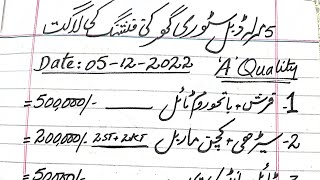 5 مرلہ ڈبل سٹوری گھر کی فنشنگ کی لاگت
Date: 05-12-2022 'A' Quality
1- فرش + باتھ روم ٹائل ___ /500,000 =
2- سیڑھی + کچن ماربل 2ST+2KT /200,000 =
/500,000 =